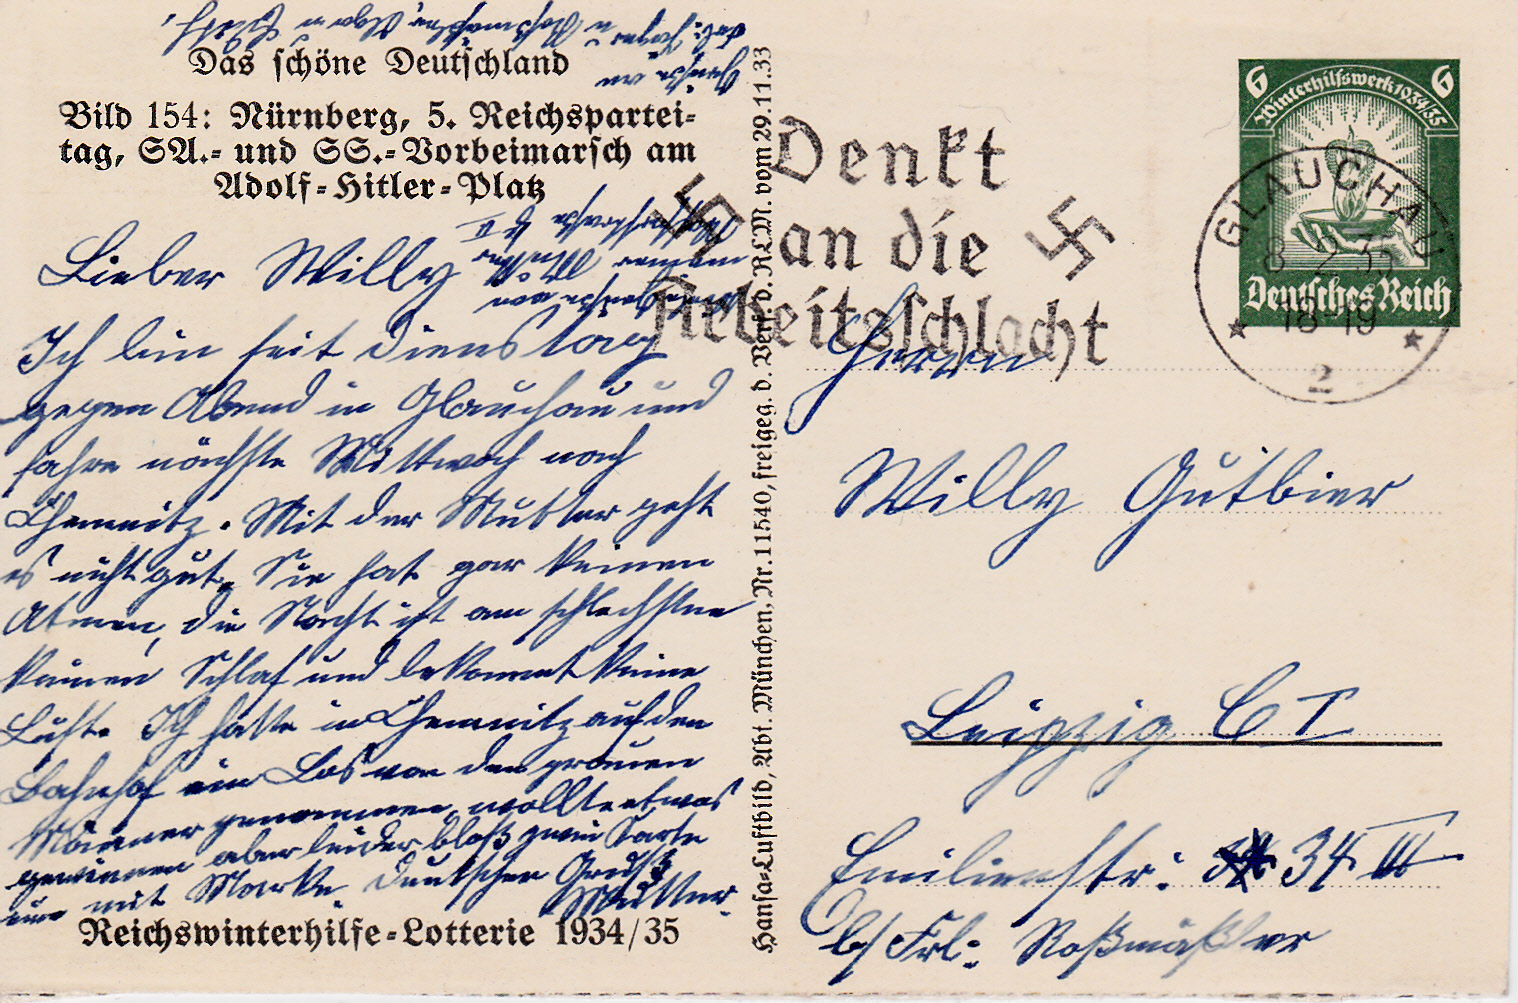 Das schöne Deutschland
Bild 154: Nürnberg, 5. Reichspartei-
tag, SA.- und SS.-Vorbeimarsch am
Adolf-Hitler-Platz
Lieber Willy
Ich bin seit Dienstag
gegen Abend in Glauchau und
fahre nächste Mittwoch nach
Chemnitz. Mit der Mutter geht
es nicht gut. Sie hat gar keinen
Atmen, die Nacht ist am schlechsten
keinen Schlaf und bekommt keine
Luft. Ich hatte in Chemnitz auf den
Bahnhof ein Los von den grauen
Männer genommen, wollte etwas
gewinnen aber leider bloß zwei Karte
nur mit Marke. Deutschen Gruß
Mutter.
Reichswinterhilfe-Lotterie 1934/35
Hansa-Luftbild, Abt. München, Nr. 11540, freigeg. d. Verf. d. RLM. vom 29.11.33
Denkt
an die
Arbeitsschlacht
6 Winterhilfswerk 1934/35 6
Deutsches Reich
GLAUCHAU
8.2.35
18-19
2
Herrn
Willy Gutbier
Leipzig C 1
Emilienstr: 34 III
b/ Frl: Roßmäßler